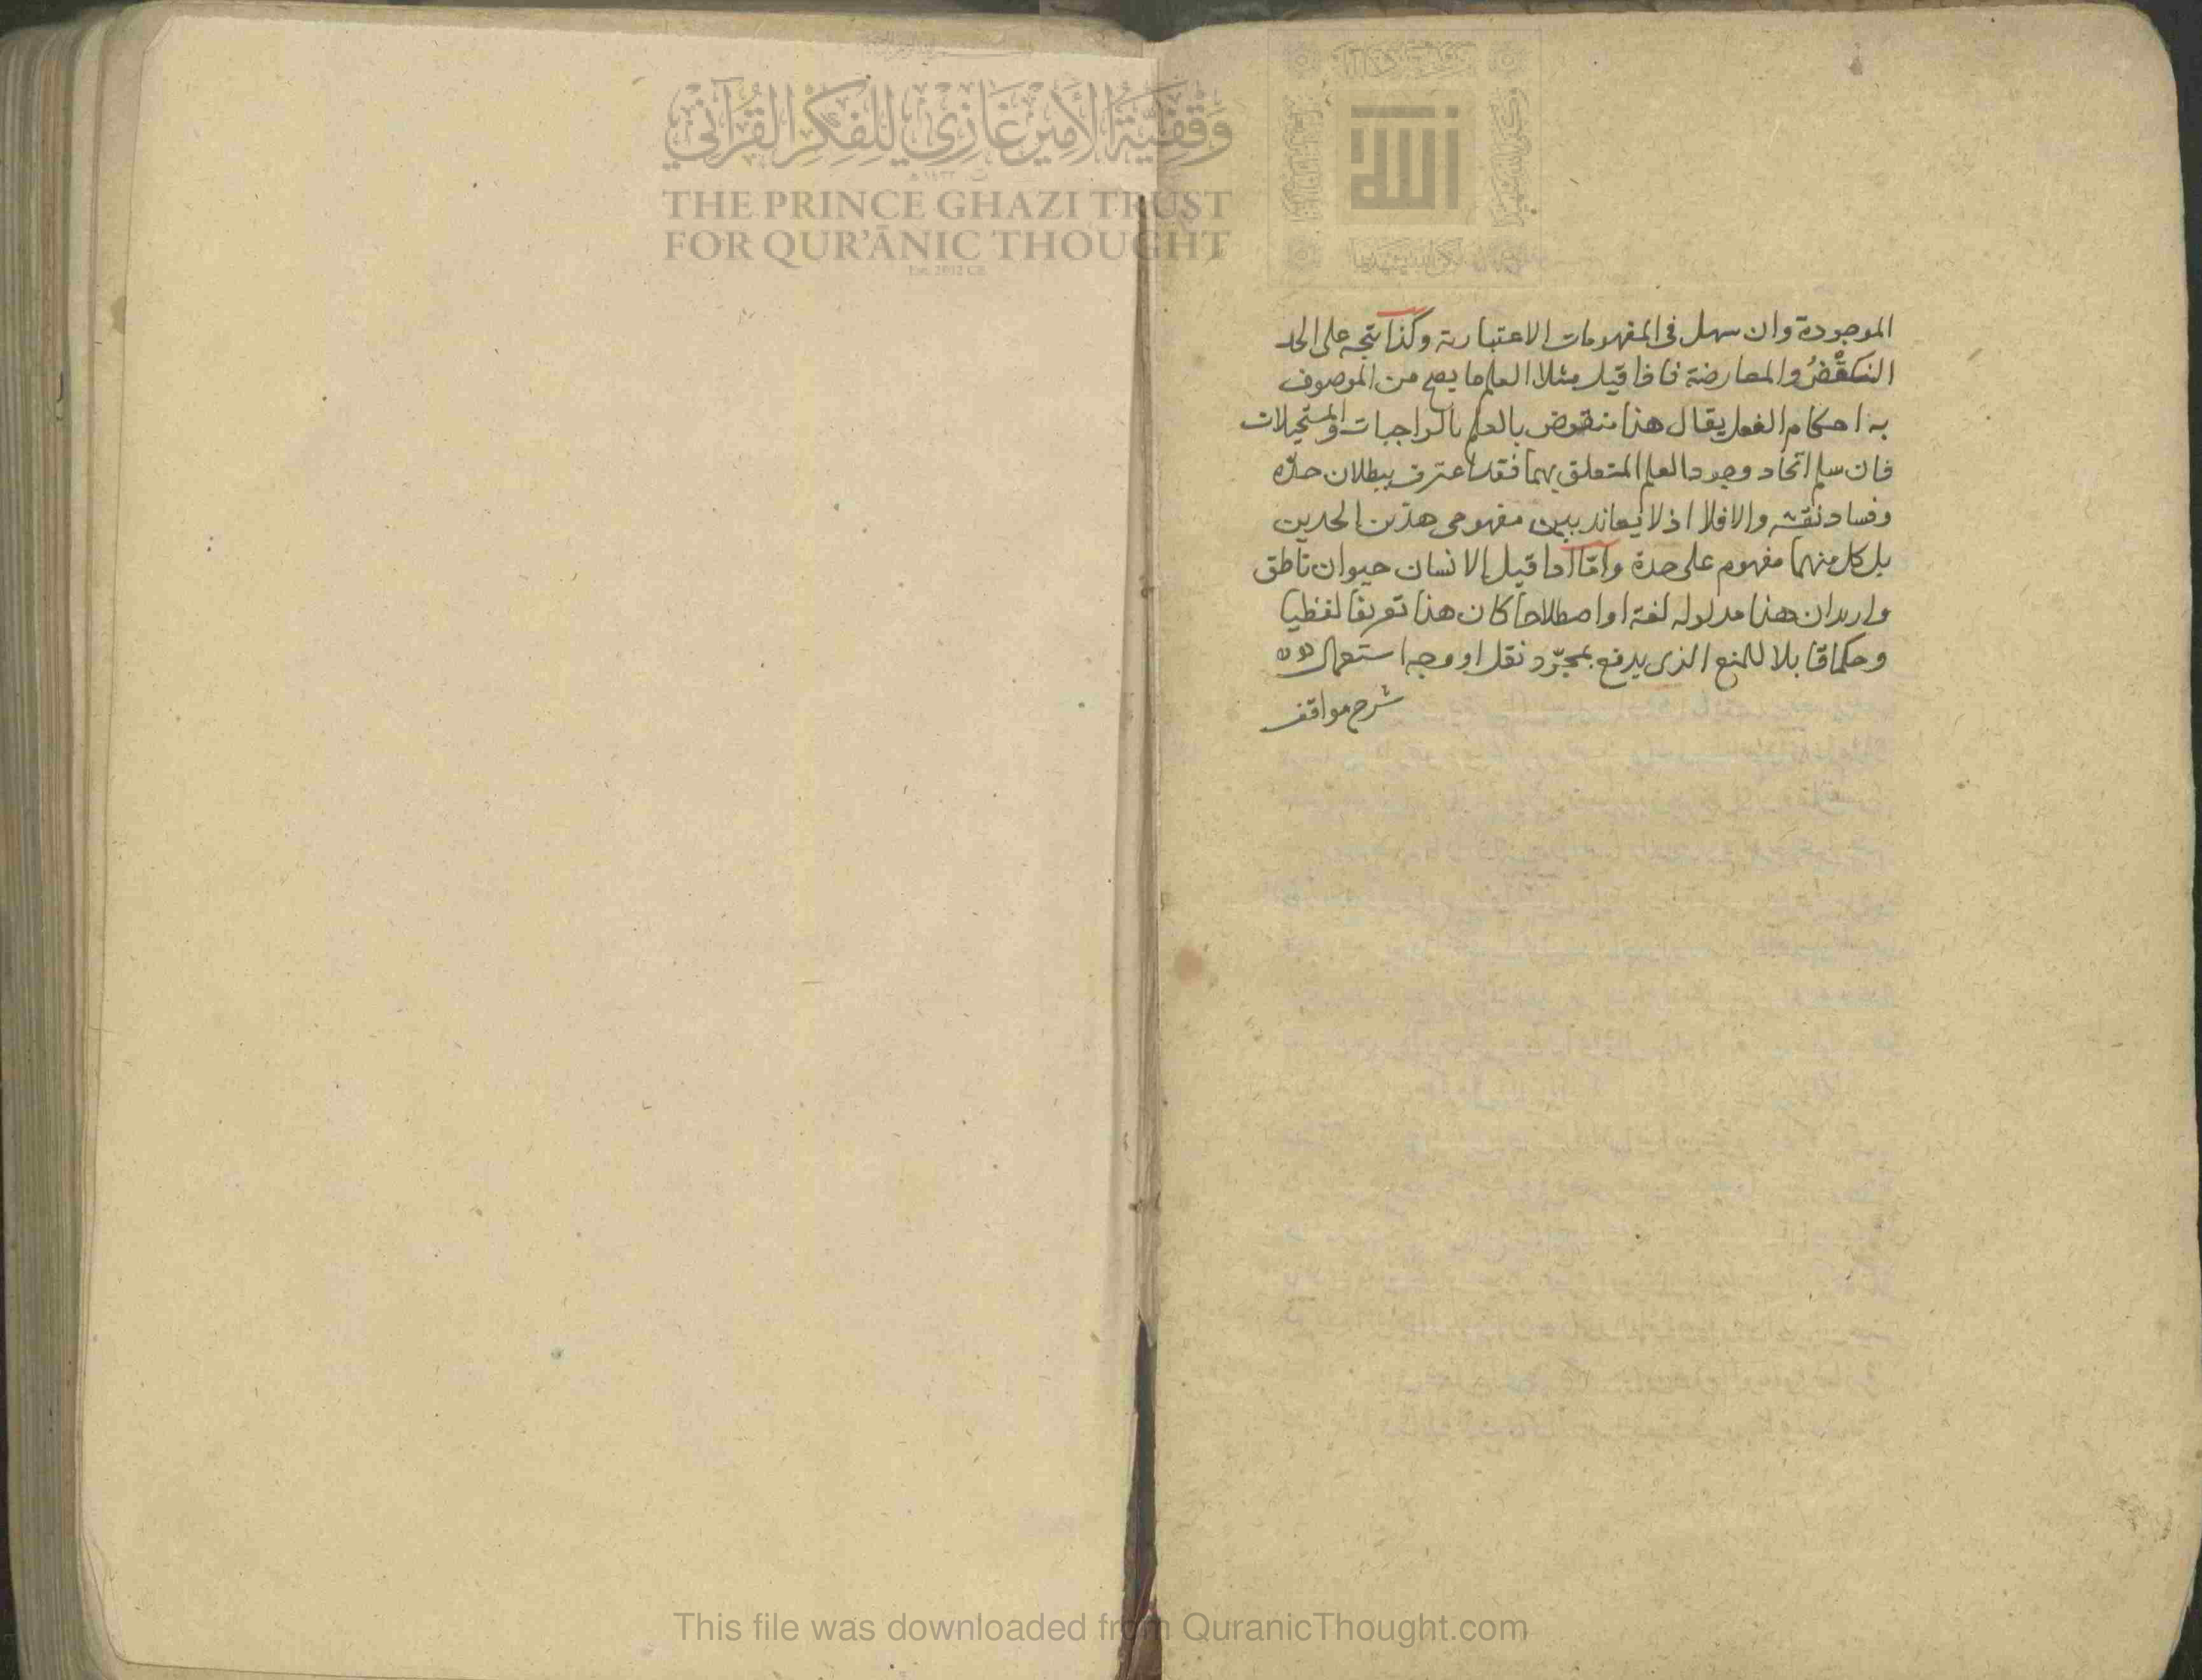 وَقْفِيَّةُ الأَمِيرِ غَازِي لِلْفِكْرِ القُرْآنِيّ
THE PRINCE GHAZI TRUST
FOR QUR'ĀNIC THOUGHT
Est. 2012 CE
الله
الموجودة وان سهل فى المفهومات الاعتبارية وكذا يتجه على الحد
النقضُ والمعارضة فاذا قيل مثلا العلم ما يصح من الموصوف
به احكام الفعل يقال هذا منقوض بالعلم بالواجبات والمستحيلات
فان سلم اتحاد وجود العلم المتعلق بهما فقد اعترف ببطلان حده
وفساد نقشه والا فلا اذ لا تعاند بين مفهومى هذين الحدين
بل كل منهما مفهوم على حدة واما اذا قيل الانسان حيوان ناطق
واريد ان هذا مدلوله لغة او اصطلاحا كان هذا تعريفا لفظيا
وحكما قابلا للمنع الذى يدفع بمجرّد نقل او وجه استعمال
شرح مواقف
This file was downloaded from QuranicThought.com